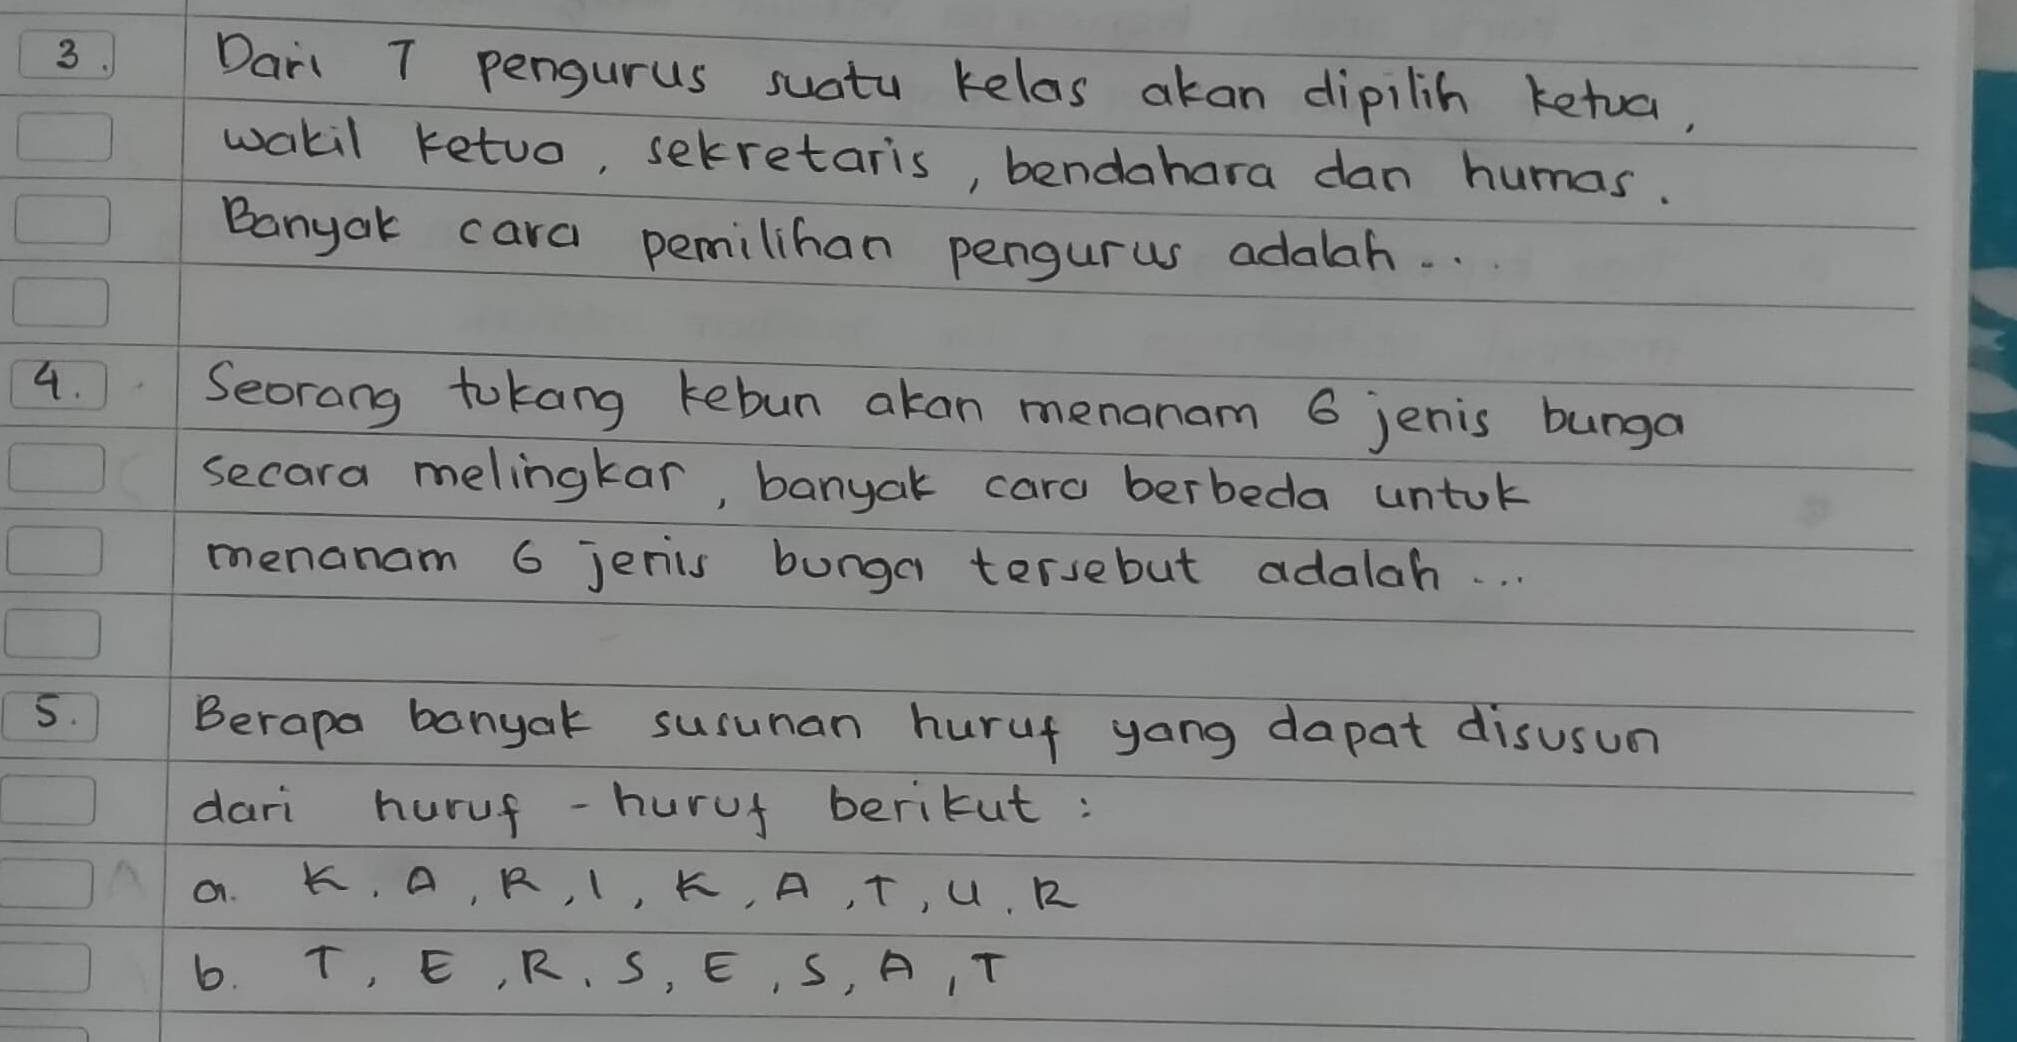 3. Dari 7 pengurus suatu kelas akan dipilih ketua,
wakil ketua, sekretaris, bendahara dan humas.
Banyak cara pemilihan pengurus adalah...
4. Seorang tukang kebun akan menanam 6 jenis bunga
secara melingkar, banyak cara berbeda untuk
menanam 6 jenis bunga tersebut adalah...
5. Berapa banyak susunan huruf yang dapat disusun
dari huruf-huruf berikut:
a. K, A, R, I, K, A, T, U, R
b. T, E, R, S, E, S, A, T